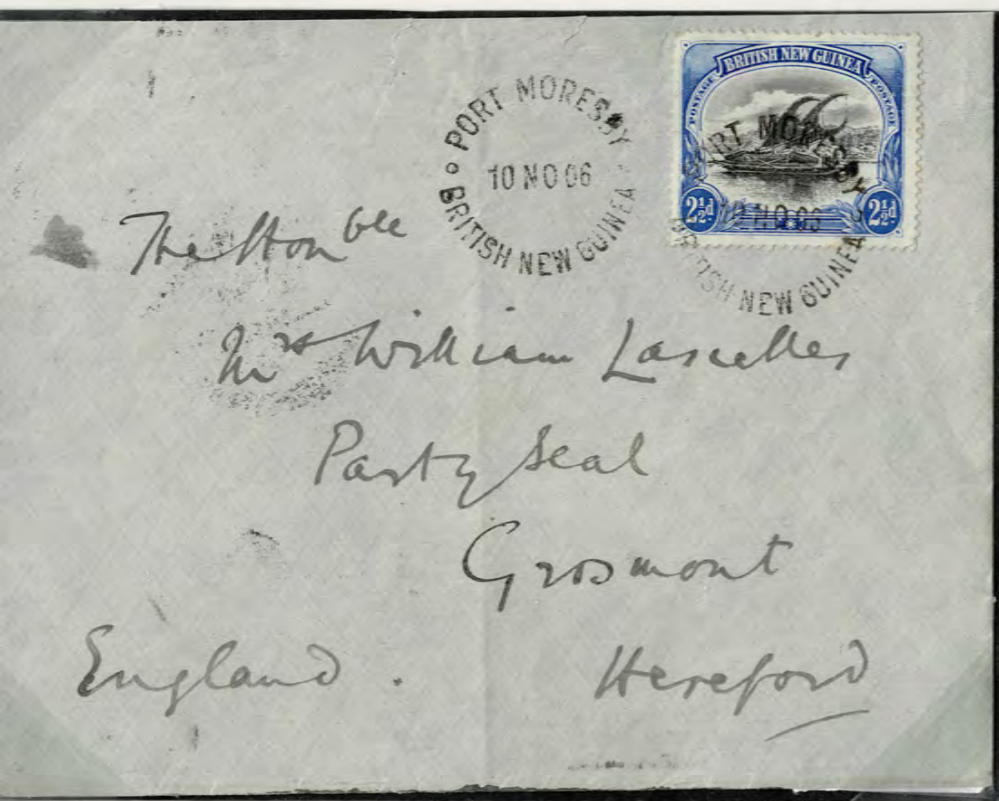 PORT MORESBY
10 NO 06
BRITISH NEW GUINEA
BRITISH NEW GUINEA
POSTAGE
POSTAGE
2½d
2½d
PORT MORESBY
10 NO 06
BRITISH NEW GUINEA
The Honble
Mrs William Lascelles
Party Seal
Grosmont
Hereford
England.